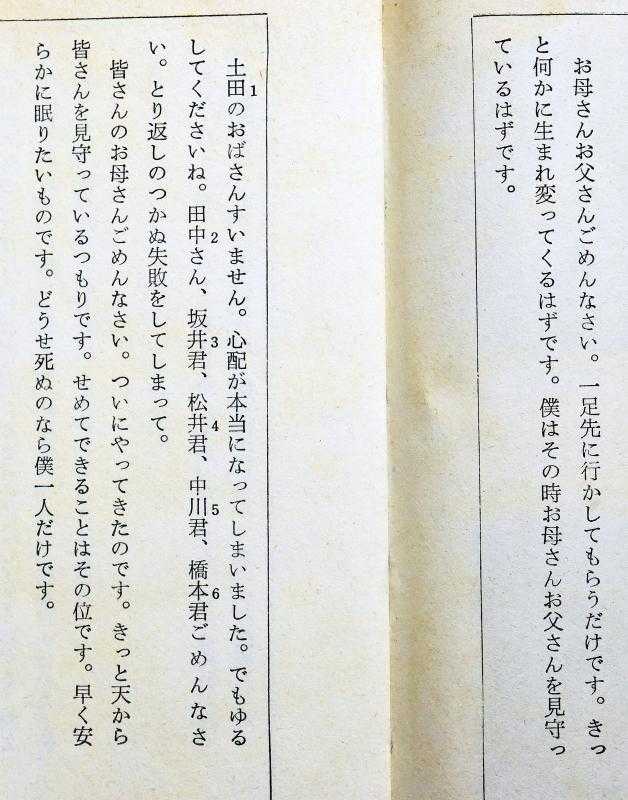 お母さんお父さんごめんなさい。一足先に行かしてもらうだけです。きっ
と何かに生まれ変ってくるはずです。僕はその時お母さんお父さんを見守っ
ているはずです。
土田のおばさんすいません。心配が本当になってしまいました。でもゆる
してくださいね。田中さん、坂井君、松井君、中川君、橋本君ごめんなさ
い。とり返しのつかぬ失敗をしてしまって。
皆さんのお母さんごめんなさい。ついにやってきたのです。きっと天から
皆さんを見守っているつもりです。せめてできることはその位です。早く安
らかに眠りたいものです。どうせ死ぬのなら僕一人だけです。
1
2
3
4
5
6